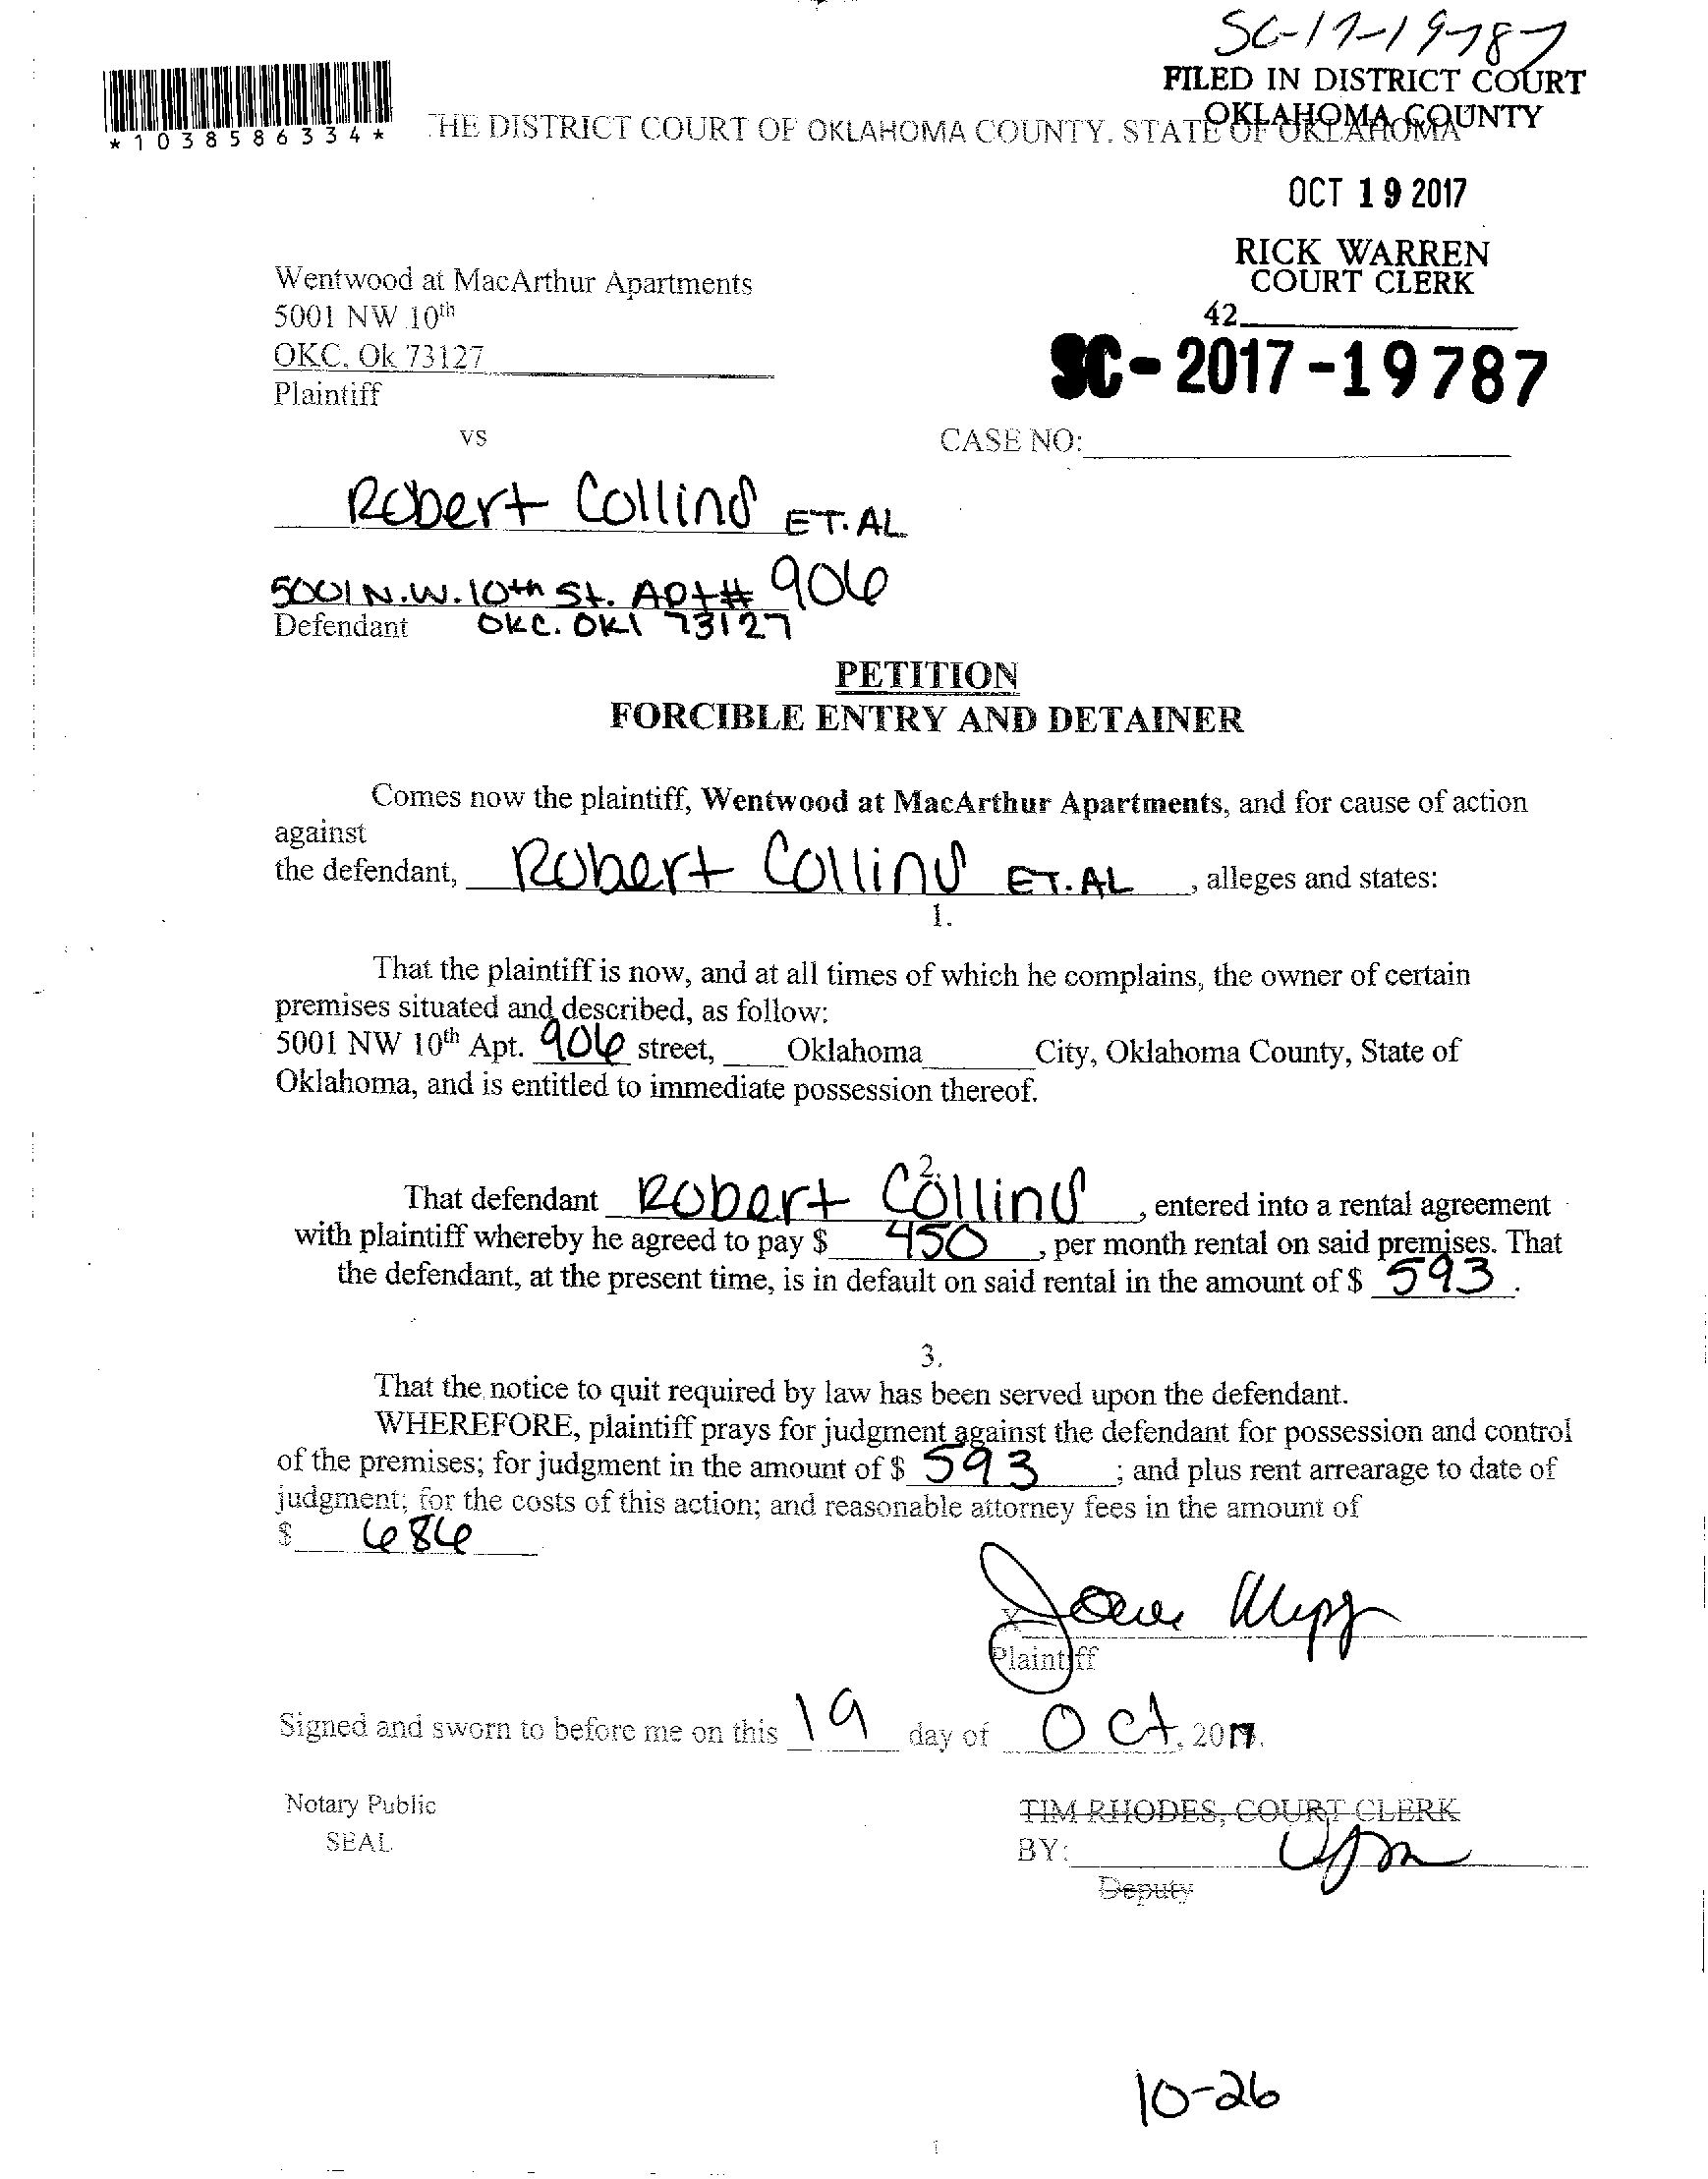 SC-17-19787
FILED IN DISTRICT COURT
OKLAHOMA COUNTY
*1038586334*
THE DISTRICT COURT OF OKLAHOMA COUNTY, STATE OF OKLAHOMA
OCT 19 2017
RICK WARREN
COURT CLERK
42
Wentwood at MacArthur Apartments
5001 NW 10th
OKC, Ok 73127
Plaintiff
SC-2017-19787
vs
CASE NO:
Robert Collins ET. AL
5001 N.W. 10th St. Apt# 906
Defendant OKC. OKl 73127
PETITION
FORCIBLE ENTRY AND DETAINER
Comes now the plaintiff, Wentwood at MacArthur Apartments, and for cause of action
against
the defendant, Robert Collins ET. AL, alleges and states:
1.
That the plaintiff is now, and at all times of which he complains, the owner of certain
premises situated and described, as follow:
5001 NW 10th Apt. 906 street, Oklahoma City, Oklahoma County, State of
Oklahoma, and is entitled to immediate possession thereof.
2.
That defendant Robert Collins, entered into a rental agreement
with plaintiff whereby he agreed to pay $ 450, per month rental on said premises. That
the defendant, at the present time, is in default on said rental in the amount of $ 593.
3.
That the notice to quit required by law has been served upon the defendant.
WHEREFORE, plaintiff prays for judgment against the defendant for possession and control
of the premises; for judgment in the amount of $ 593; and plus rent arrearage to date of
judgment; for the costs of this action; and reasonable attorney fees in the amount of
$ 686
X
Plaintiff
Signed and sworn to before me on this 19 day of Oct, 2017.
Notary Public
SEAL
TIM RHODES, COURT CLERK
BY:
Deputy
10-26
1